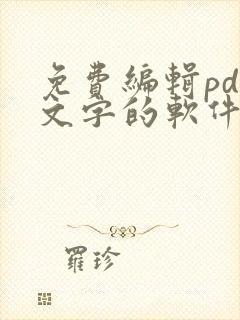 免費編輯pd
文字的軟件
羅珍